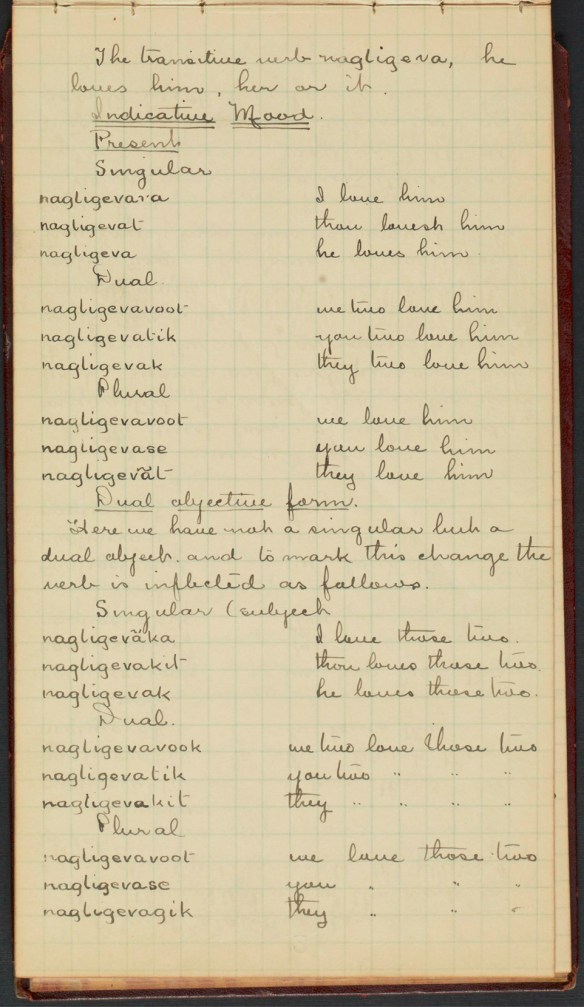 The transitive verb nagligeva, he
loves him, her or it.
Indicative Mood.
Present
Singular
nagligevara I love him
nagligevat thou lovest him
nagligeva he loves him.
Dual
nagligevavoot we two love him
nagligevatik you two love him
nagligevak they two love him
Plural
nagligevavoot we love him
nagligevase you love him
nagligevät they love him
Dual objective form.
Here we have not a singular but a
dual object. and to mark this change the
verb is inflected as follows.
Singular (subject
nagligeväka I love those two.
nagligevakit thou loves those two.
nagligevak he loves those two.
Dual.
nagligevavook we two love those two
nagligevatik you two " " "
nagligevakit they " " " "
Plural
nagligevavoot we love those two
nagligevase you " " "
nagligevagik they " " "